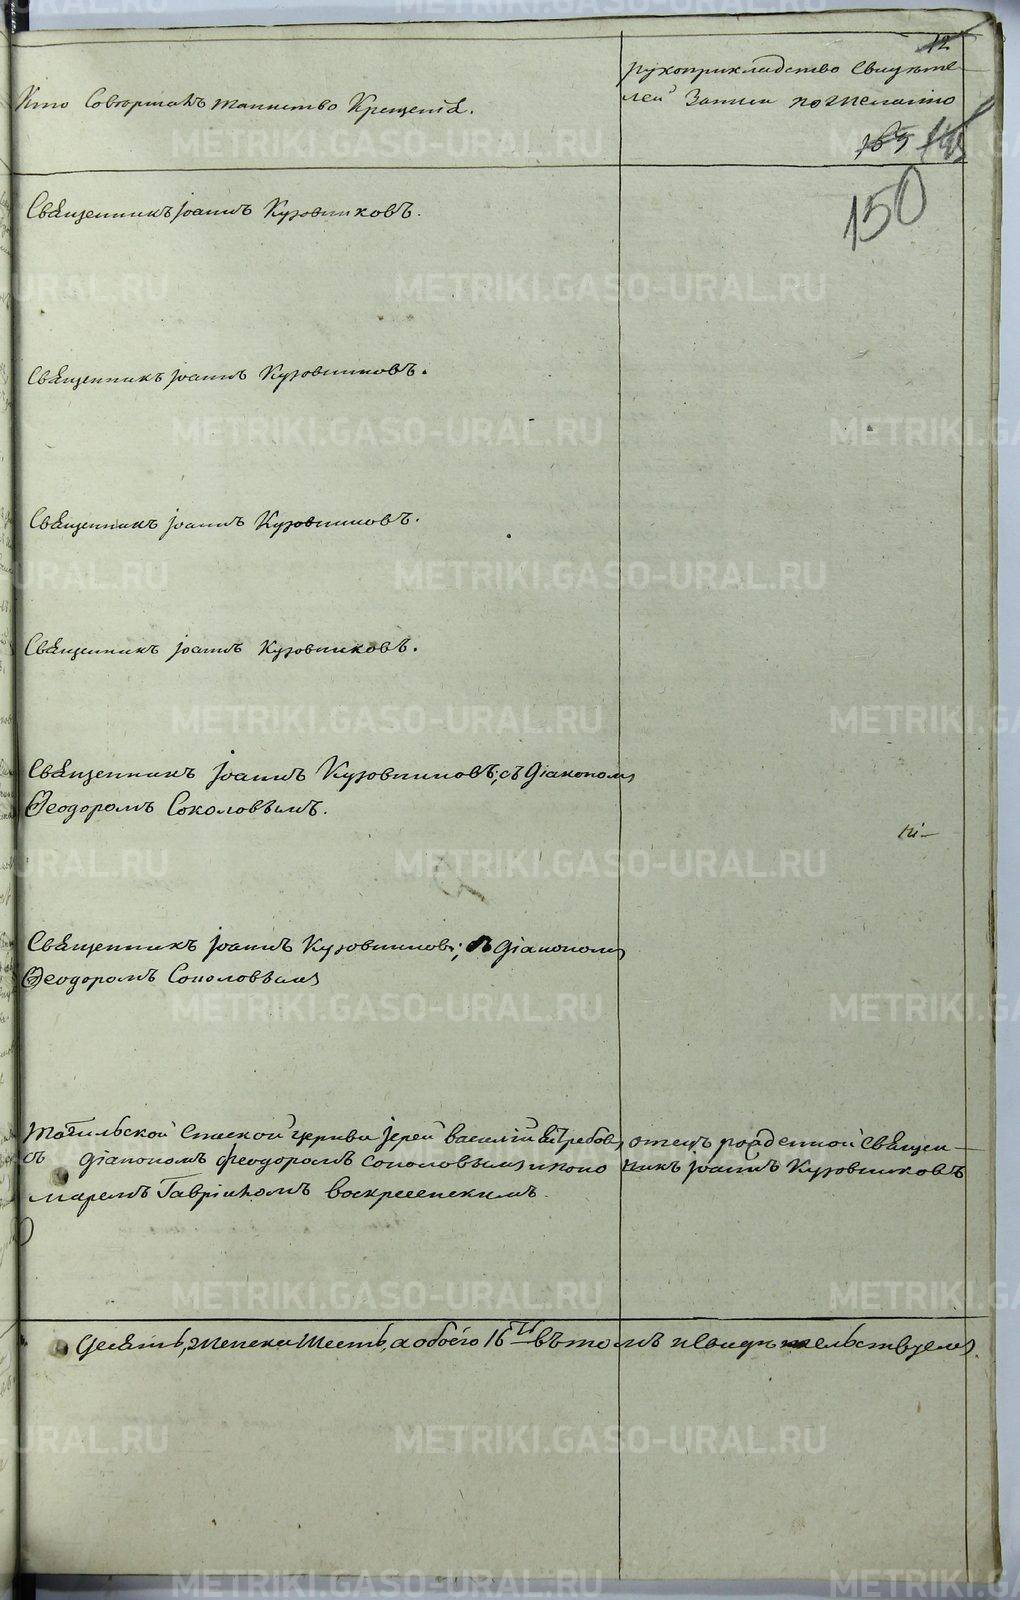 12
Кто Совершалъ таинство Крещенія.
рукоприкладство Свидѣте-
лей Записи по желанію
165
150
Священникъ Іоаннъ Кузовниковъ.
Священникъ Іоаннъ Кузовниковъ.
Священникъ Іоаннъ Кузовниковъ.
Священникъ Іоаннъ Кузовниковъ.
Священникъ Іоаннъ Кузовниковъ, съ діакономъ
Ѳеодоромъ Соколовымъ.
Священникъ Іоаннъ Кузовниковъ, съ діакономъ
Ѳеодоромъ Соколовымъ
Спаской церкви Іерей Василій
съ діакономъ Феодоромъ Соколовымъ и поно
маремъ Гавріиломъ Воскресенскимъ.
отецъ рожденной Священ-
никъ Іоаннъ Кузовниковъ
десять, женска шесть, а обоего 16ть въ томъ и свидѣтельствуемъ.
METRIKI.GASO-URAL.RU